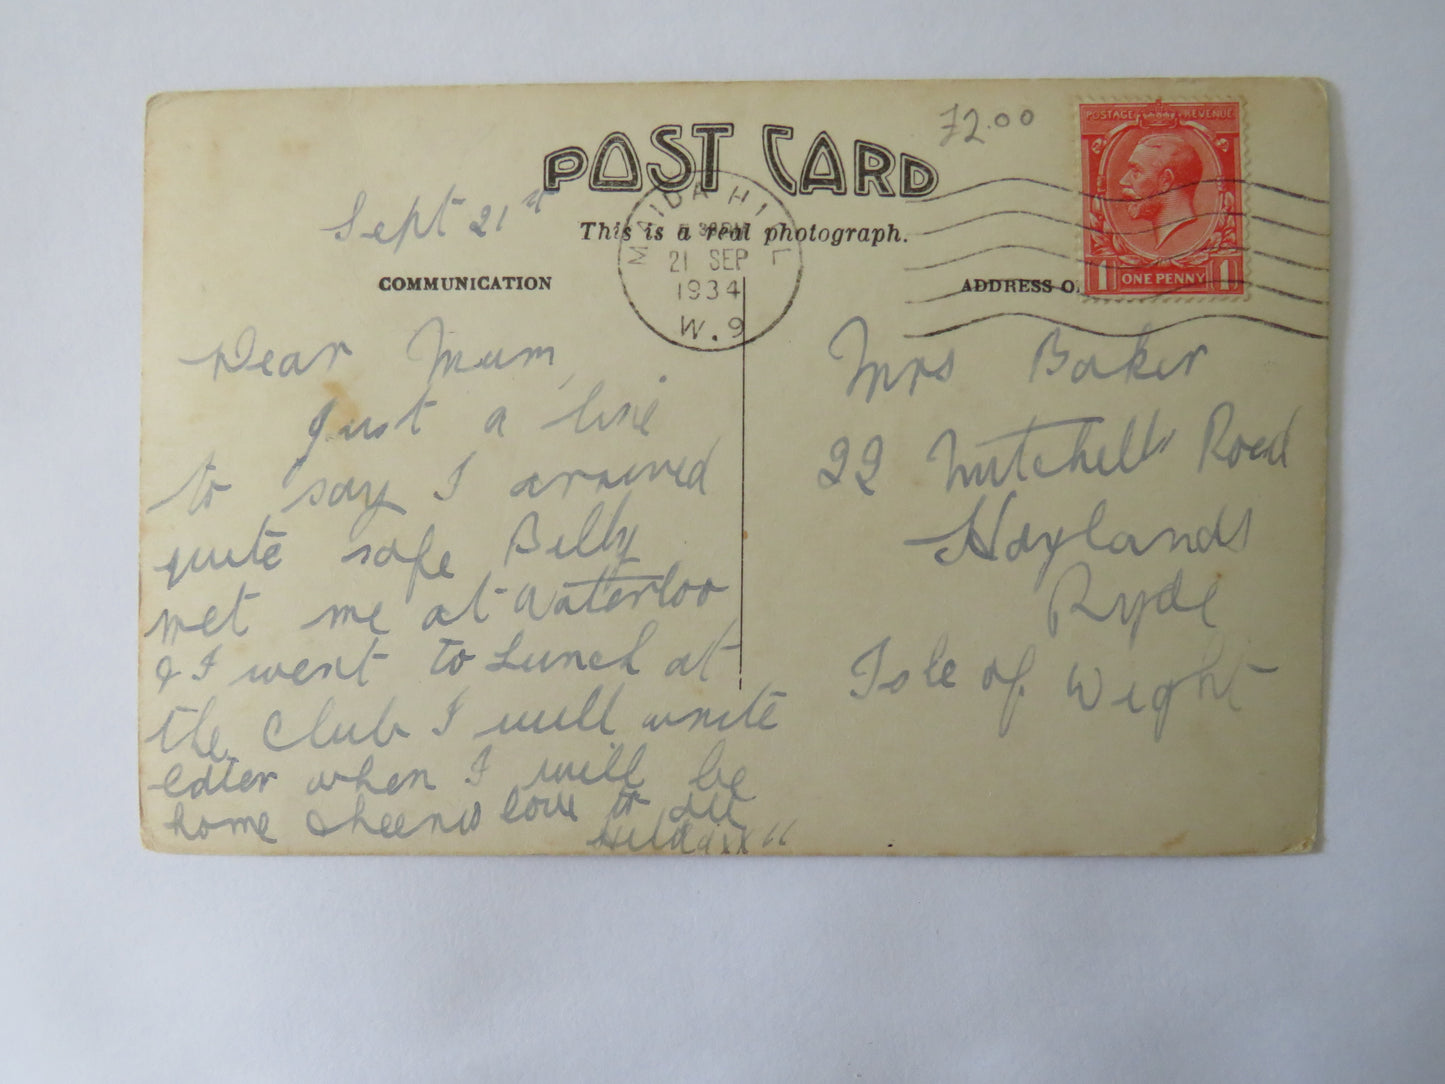 POST CARD
72.00
POSTAGE REVENUE
1 ONE PENNY 1
This is a real photograph.
MAIDA HILL
5 30PM
21 SEP
1934
W.9
Sept 21st
COMMUNICATION
ADDRESS O
Dear Mum,
Just a line
to say I arrived
quite safe Billy
met me at Waterloo
& I went to Lunch at
the Club I will write
later when I will be
home Cheerio love to all
Hilda xx
Mrs Baker
22 Mitchells Road
Haylands
Ryde
Isle of Wight